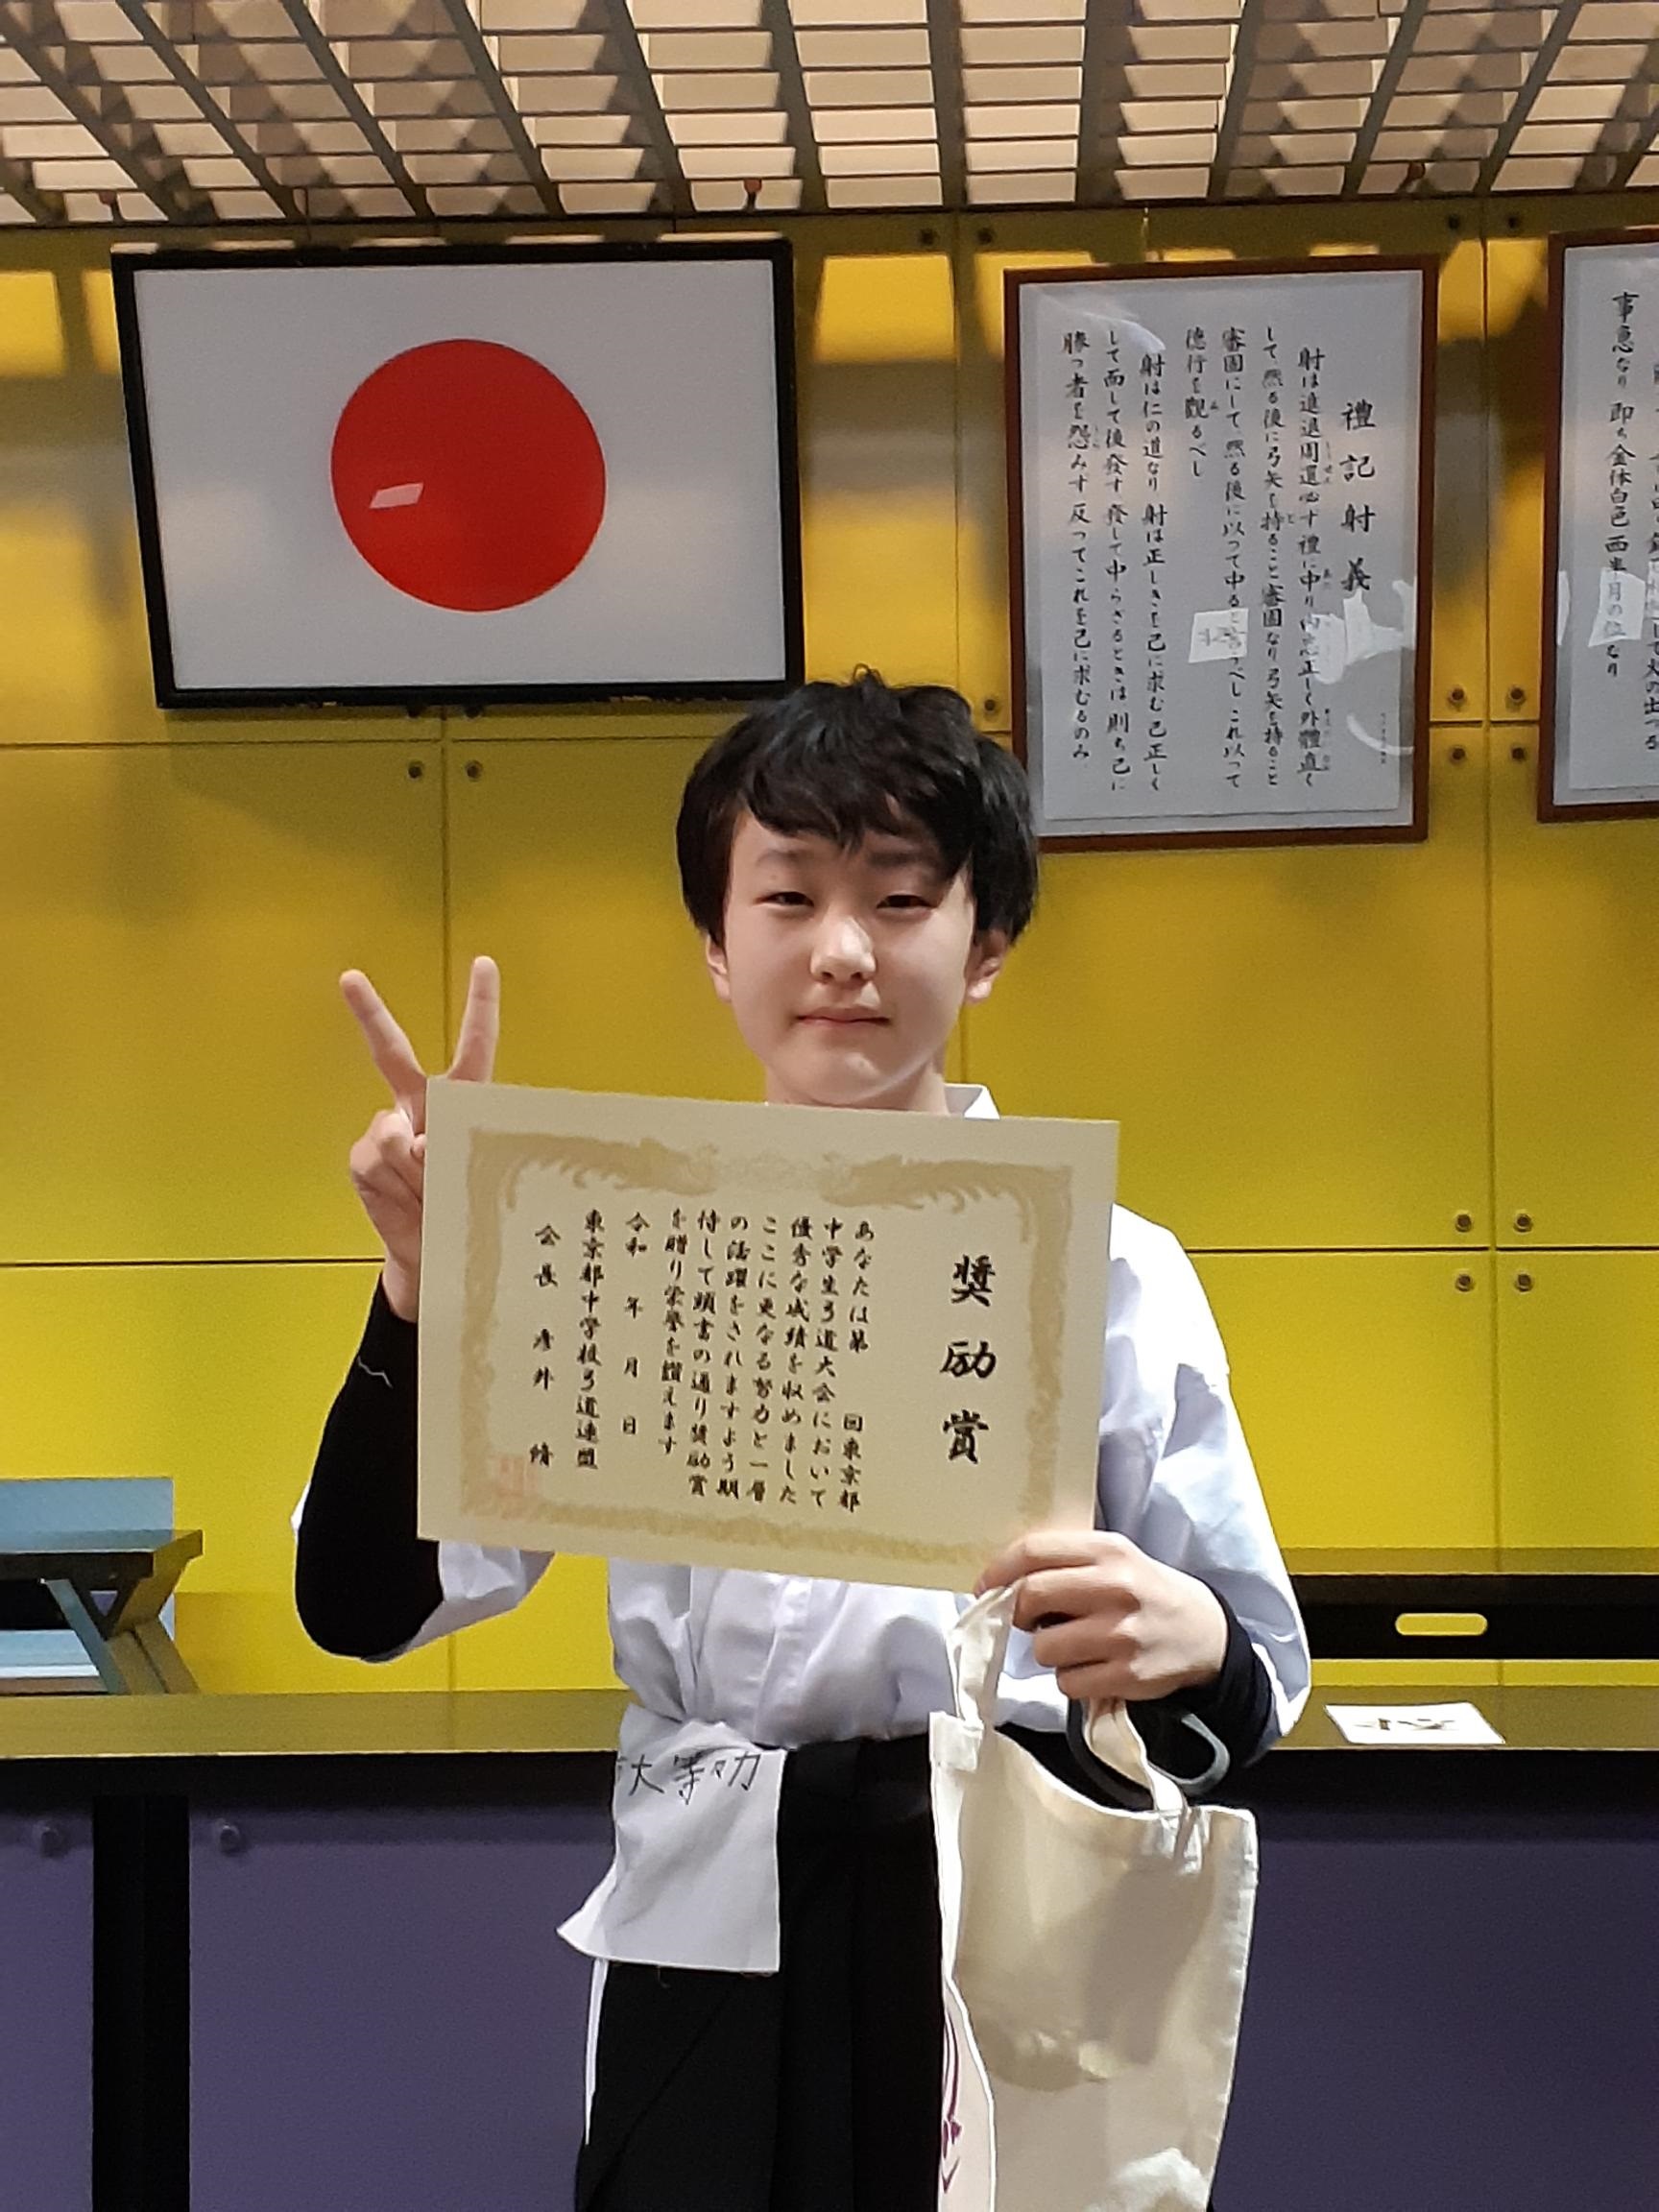 禮記射義
射は進退周還必ず禮に中り内志正しく外體直く
して然る後に弓矢を持ること審固なり弓矢を持ること
審固にして然る後に以って中ると言うべしこれ以って
德行を觀るべし
射は仁の道なり射は正しきを己に求む己正しく
して而して後發す發して中らざるときは則ち己に
勝つ者を怨みず反ってこれを己に求むるのみ
事急なり即ち金体白色西半月の位なり
奨励賞
あなたは第 回東京都
中学生弓道大会において
優秀な成績を収めました
ここに更なる努力と一層
の活躍をされますよう期
待して頭書の通り奨励賞
を贈り栄誉を讃えます
令和 年 月 日
東京都中学校弓道連盟
会長
大等々力